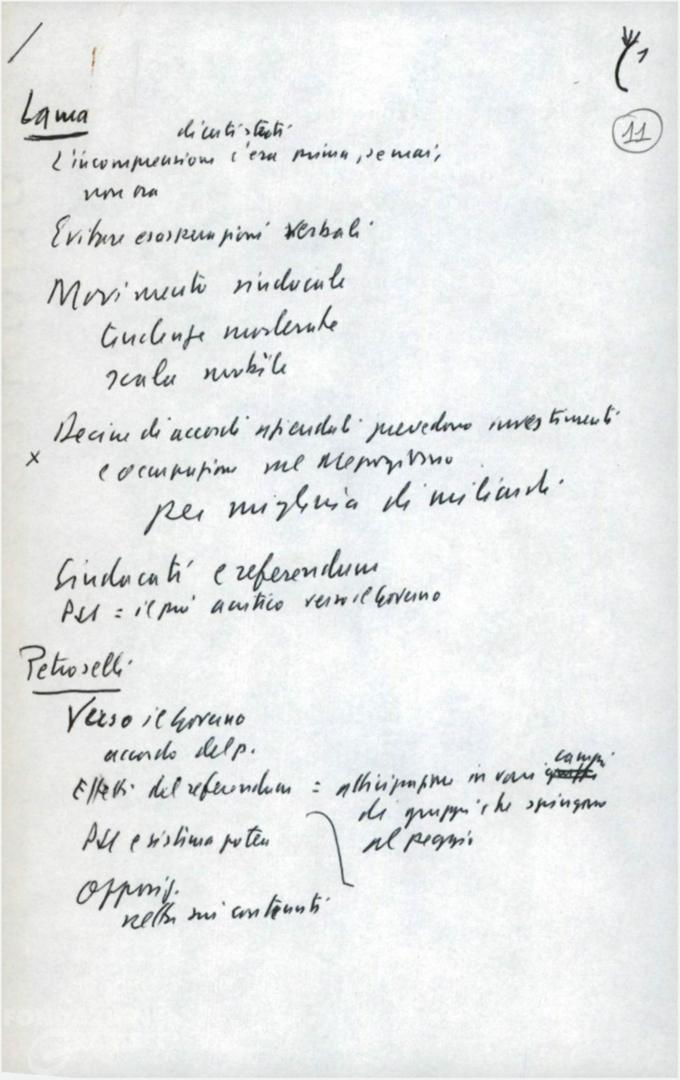 11
Lama
di certi strati
L'incomprensione c'era prima, se mai,
non ora
Evitare esasperazioni verbali
Movimento sindacale
tendenze moderate
scala mobile
x Decine di accordi aziendali prevedono investimenti
e occupazione nel Mezzogiorno
per migliaia di miliardi
Sindacati e referendum
PSI = il più acritico verso il Governo
Petroselli
Verso il Governo
accordo del p.
campi
Effetti del referendum = in vari
di gruppi che spingono
PSI e sistema poteri
al peggio
Opposiz.
netta sui contenuti